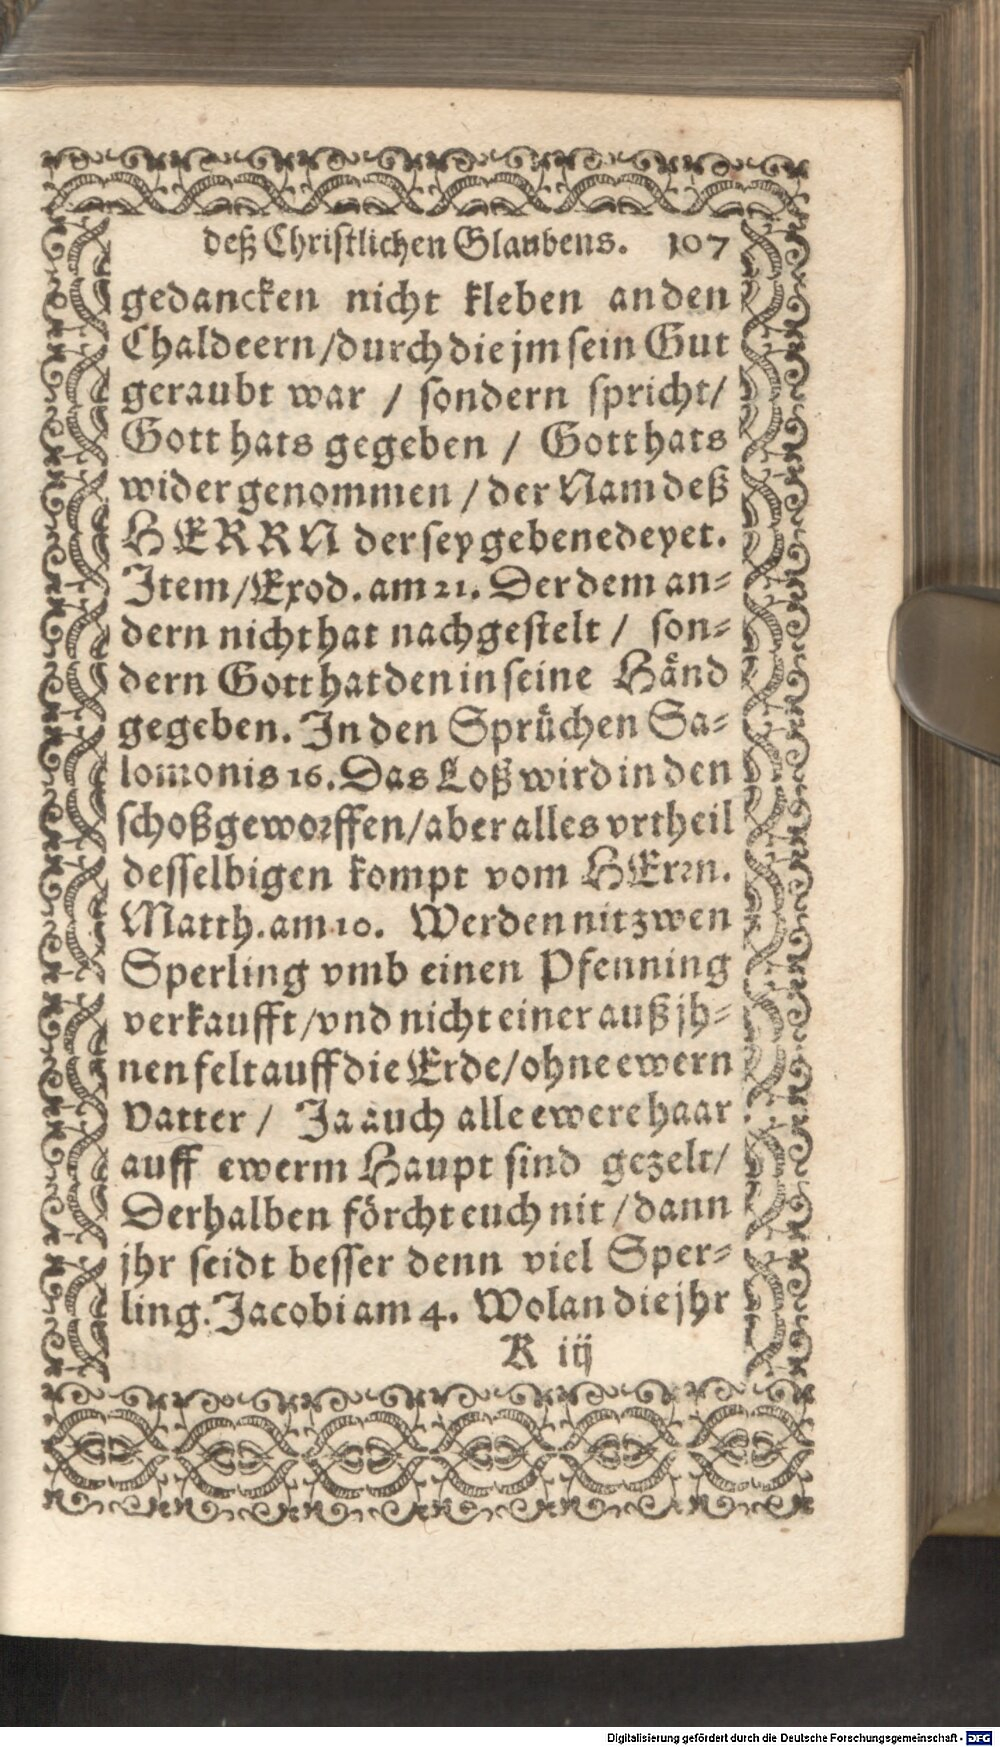 deß Christlichen Glaubens. 107
gedancken nicht kleben an den
Chaldeern/durch die jm sein Gut
geraubt war / sondern spricht/
Gott hats gegeben / Gott hats
wider genommen / der Nam deß
HERRN der sey gebenedeyet.
Item/Exod. am 21. Der dem an-
dern nicht hat nachgestelt / son-
dern Gott hat den in seine Händ
gegeben. In den Sprüchen Sa-
lomonis 16. Das Loß wird in den
schoß geworffen/aber alles vrtheil
desselbigen kompt vom HErrn.
Matth. am 10. Werden nit zwen
Sperling vmb einen Pfenning
verkaufft/vnd nicht einer auß jh-
nen felt auff die Erde/ohne ewern
Vatter / Ja auch alle ewere haar
auff ewerm Haupt sind gezelt/
Derhalben förcht euch nit / dann
jhr seidt besser denn viel Sper-
ling. Jacobi am 4. Wolan die jhr
R iij
Digitalisierung gefördert durch die Deutsche Forschungsgemeinschaft - DFG